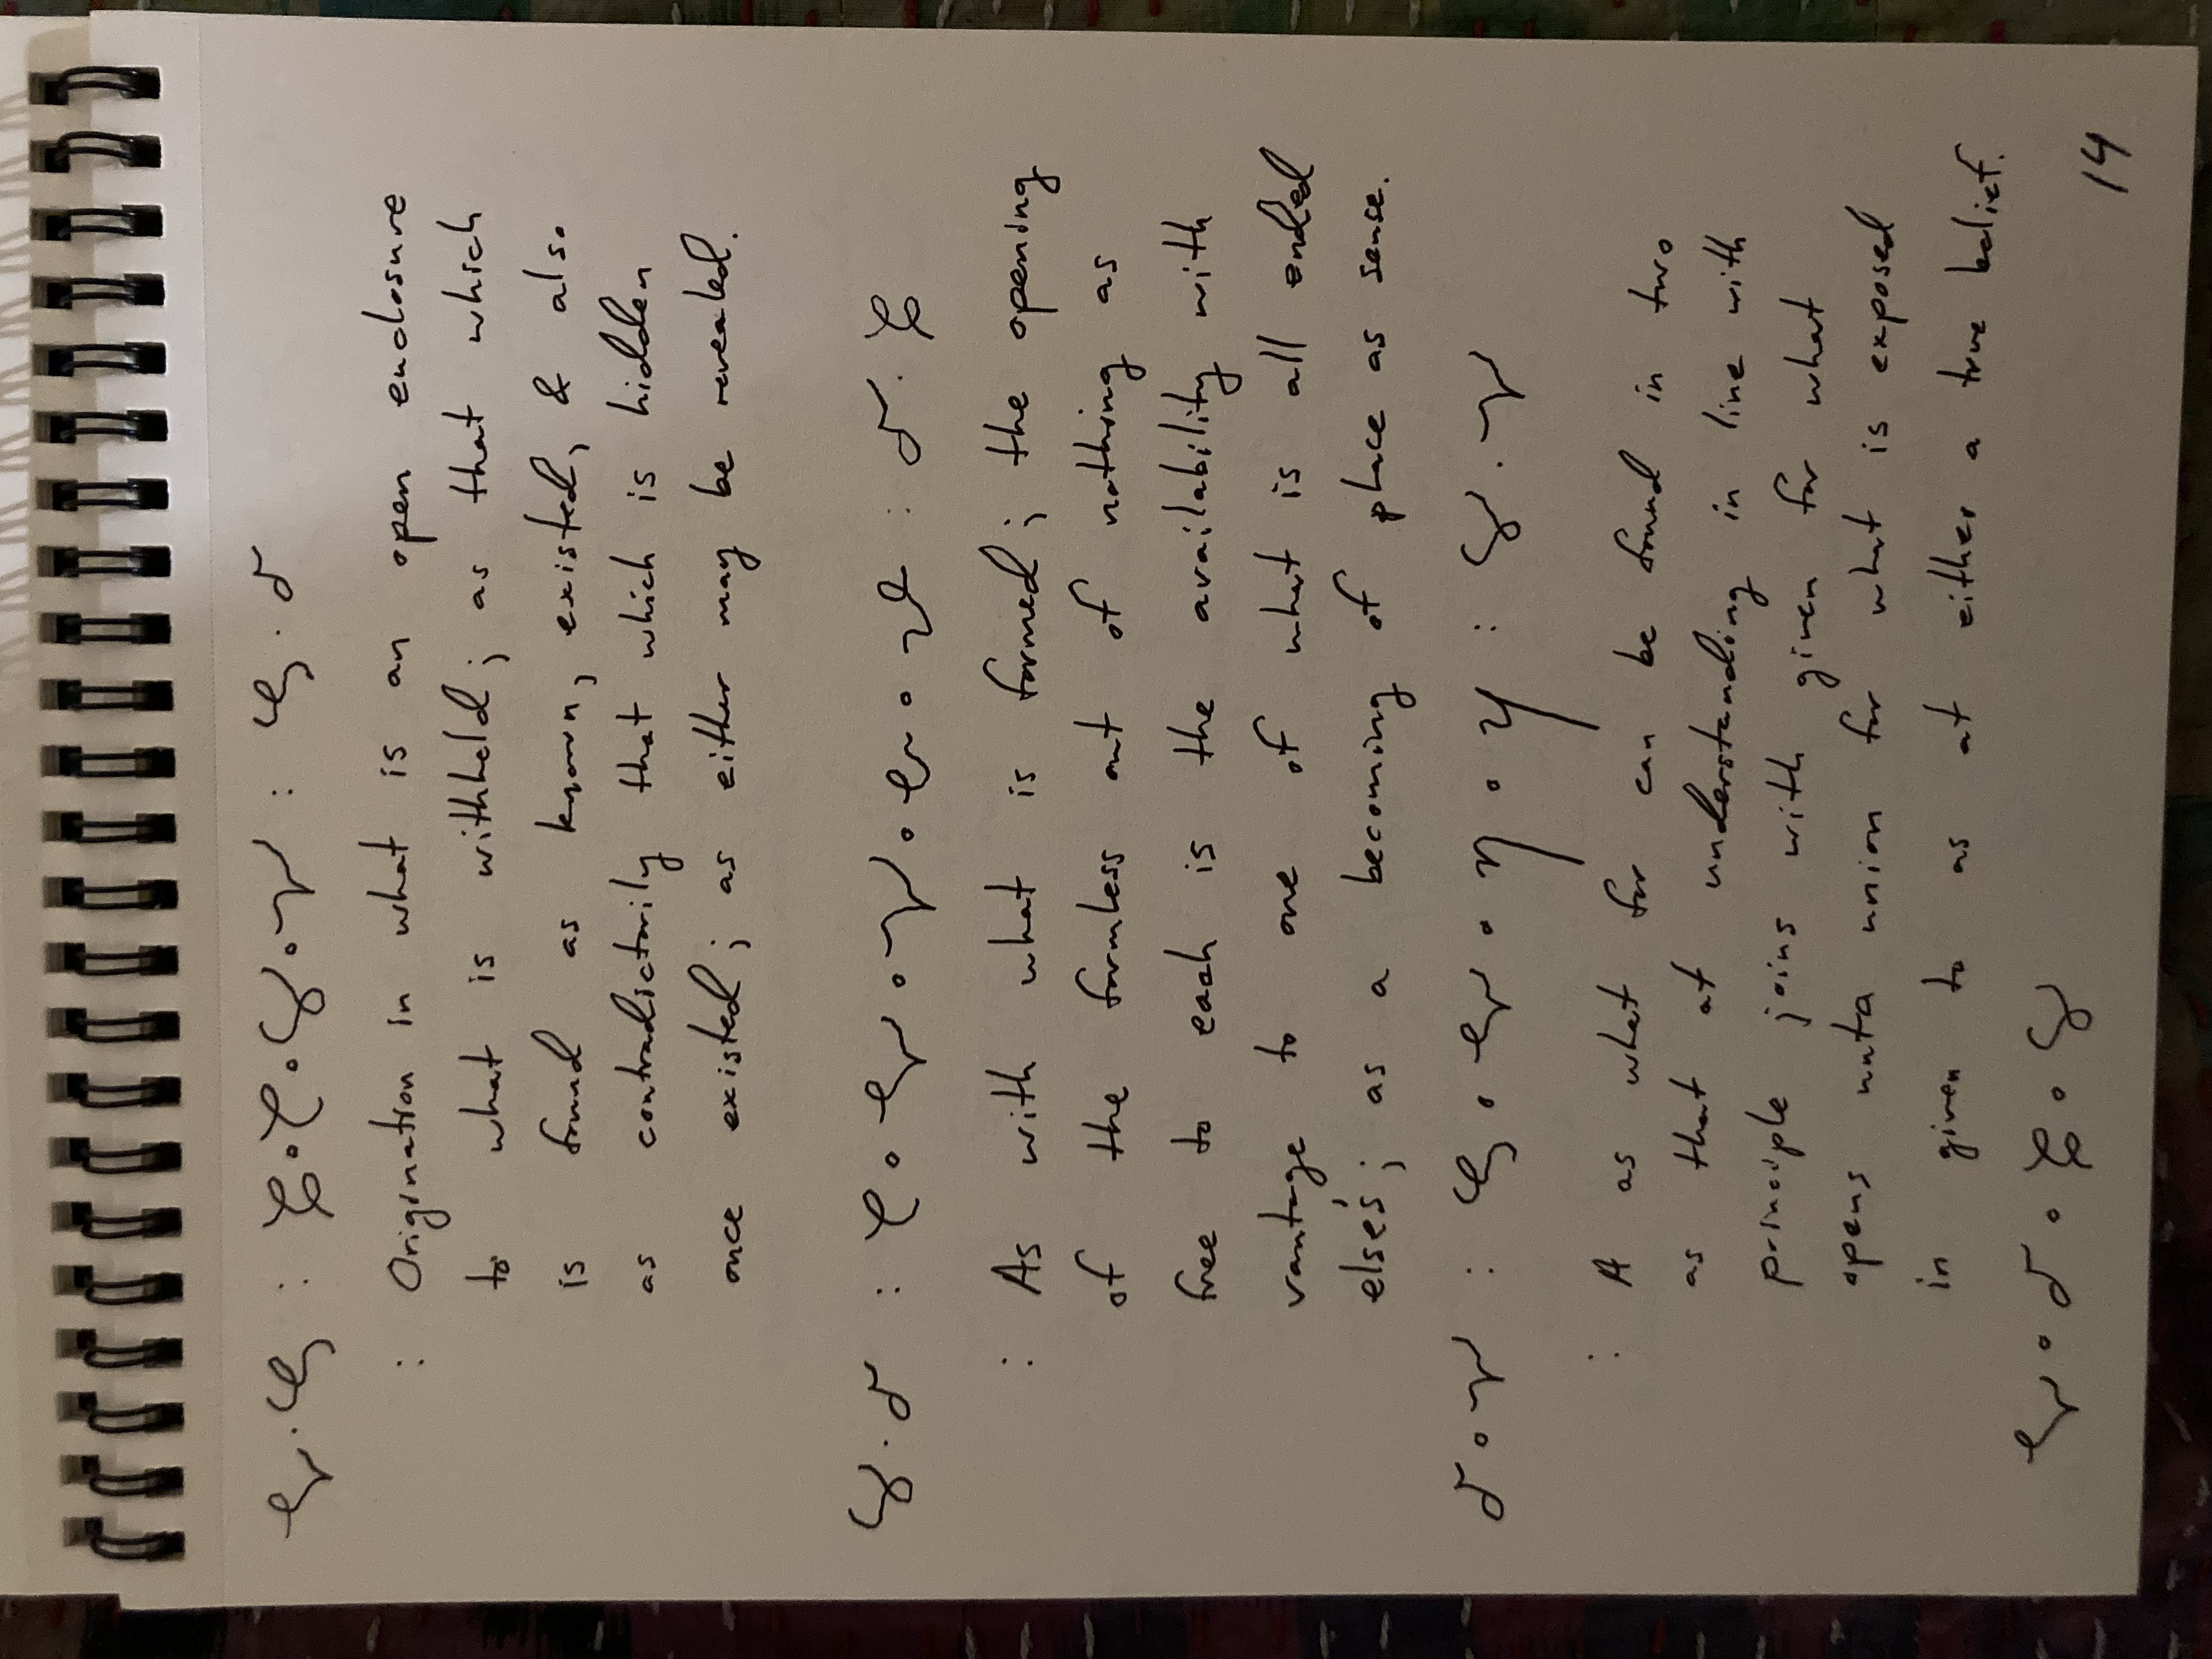 : Origination in what is an open enclosure
to what is withheld; as that which
is found as known, existed, & also
as contradictorily that which is hidden
once existed; as either may be revealed.
: As with what is formed; the opening
of the formless out of nothing as
free to each is the availability with
vantage to one of what is all ended
else's; as a becoming of place as sense.
: A as what for can be found in two
as that at understanding in line with
principle joins with given for what
opens unto union for what is exposed
in given to as at either a true belief.
14